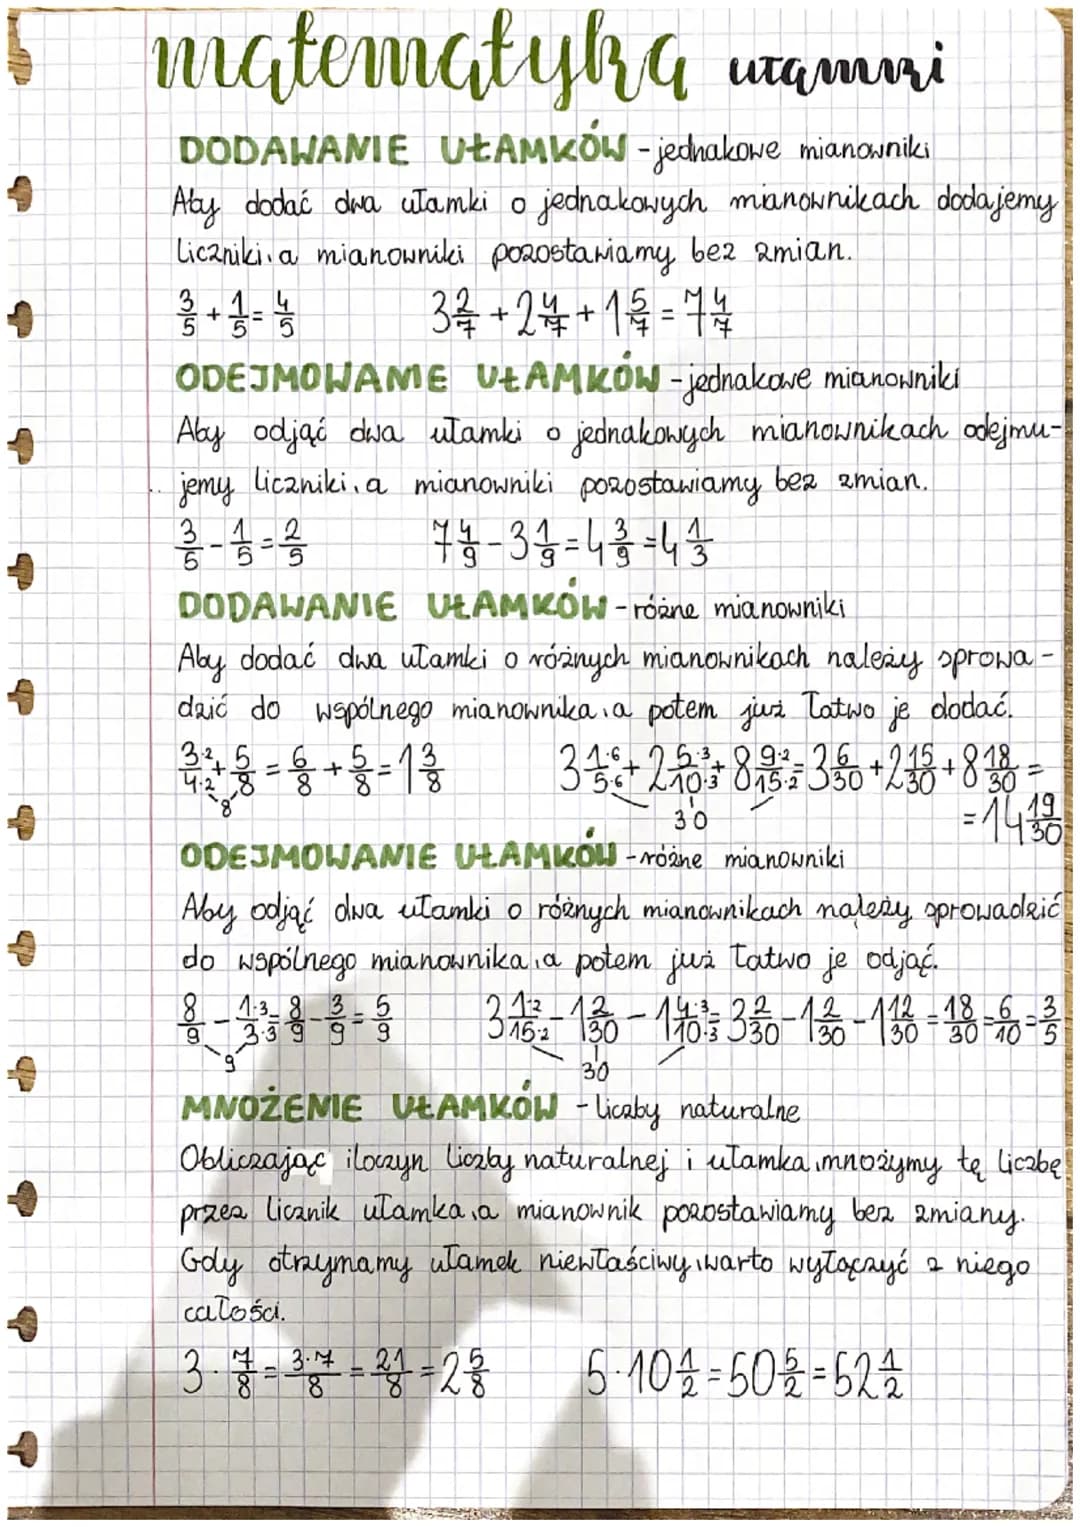 matematyka ułamki
DODAWANIE UŁAMKÓW - jednakowe mianowniki
Aby dodać dwa ułamki o jednakowych mianownikach dodajemy
liczniki, a mianowniki pozostawiamy bez zmian.
3/5 + 1/5 = 4/5 3 2/7 + 2 4/7 + 1 5/7 = 7 4/7
ODEJMOWANIE UŁAMKÓW - jednakowe mianowniki
Aby odjąć dwa ułamki o jednakowych mianownikach odejmu-
jemy liczniki, a mianowniki pozostawiamy bez zmian.
3/5 - 1/5 = 2/5 7 4/9 - 3 1/9 = 4 3/9 = 4 1/3
DODAWANIE UŁAMKÓW - różne mianowniki
Aby dodać dwa ułamki o różnych mianownikach należy sprowa-
dzić do wspólnego mianownika, a potem już łatwo je dodać.
3·2/4·2 + 5/8 = 6/8 + 5/8 = 1 3/8 3 1·6/5·6 + 2 5·3/10·3 + 8 9·2/15·2 = 3 6/30 + 2 15/30 + 8 18/30 =
8 30 = 14 19/30
ODEJMOWANIE UŁAMKÓW - różne mianowniki
Aby odjąć dwa ułamki o różnych mianownikach należy sprowadzić
do wspólnego mianownika, a potem już łatwo je odjąć.
8/9 - 1·3/3·3 = 8/9 - 3/9 = 5/9 3 1·2/15·2 - 1 2/30 - 1 4·3/10·3 = 3 2/30 - 1 2/30 - 1 12/30 = 18/30 = 6/10 = 3/5
9 30
MNOŻENIE UŁAMKÓW - liczby naturalne
Obliczając iloczyn liczby naturalnej i ułamka, mnożymy tę liczbę
przez licznik ułamka, a mianownik pozostawiamy bez zmiany.
Gdy otrzymamy ułamek niewłaściwy, warto wyłączyć z niego
całości.
3 · 7/8 = 3·7/8 = 21/8 = 2 5/8 5 · 10 1/2 = 50 5/2 = 52 1/2